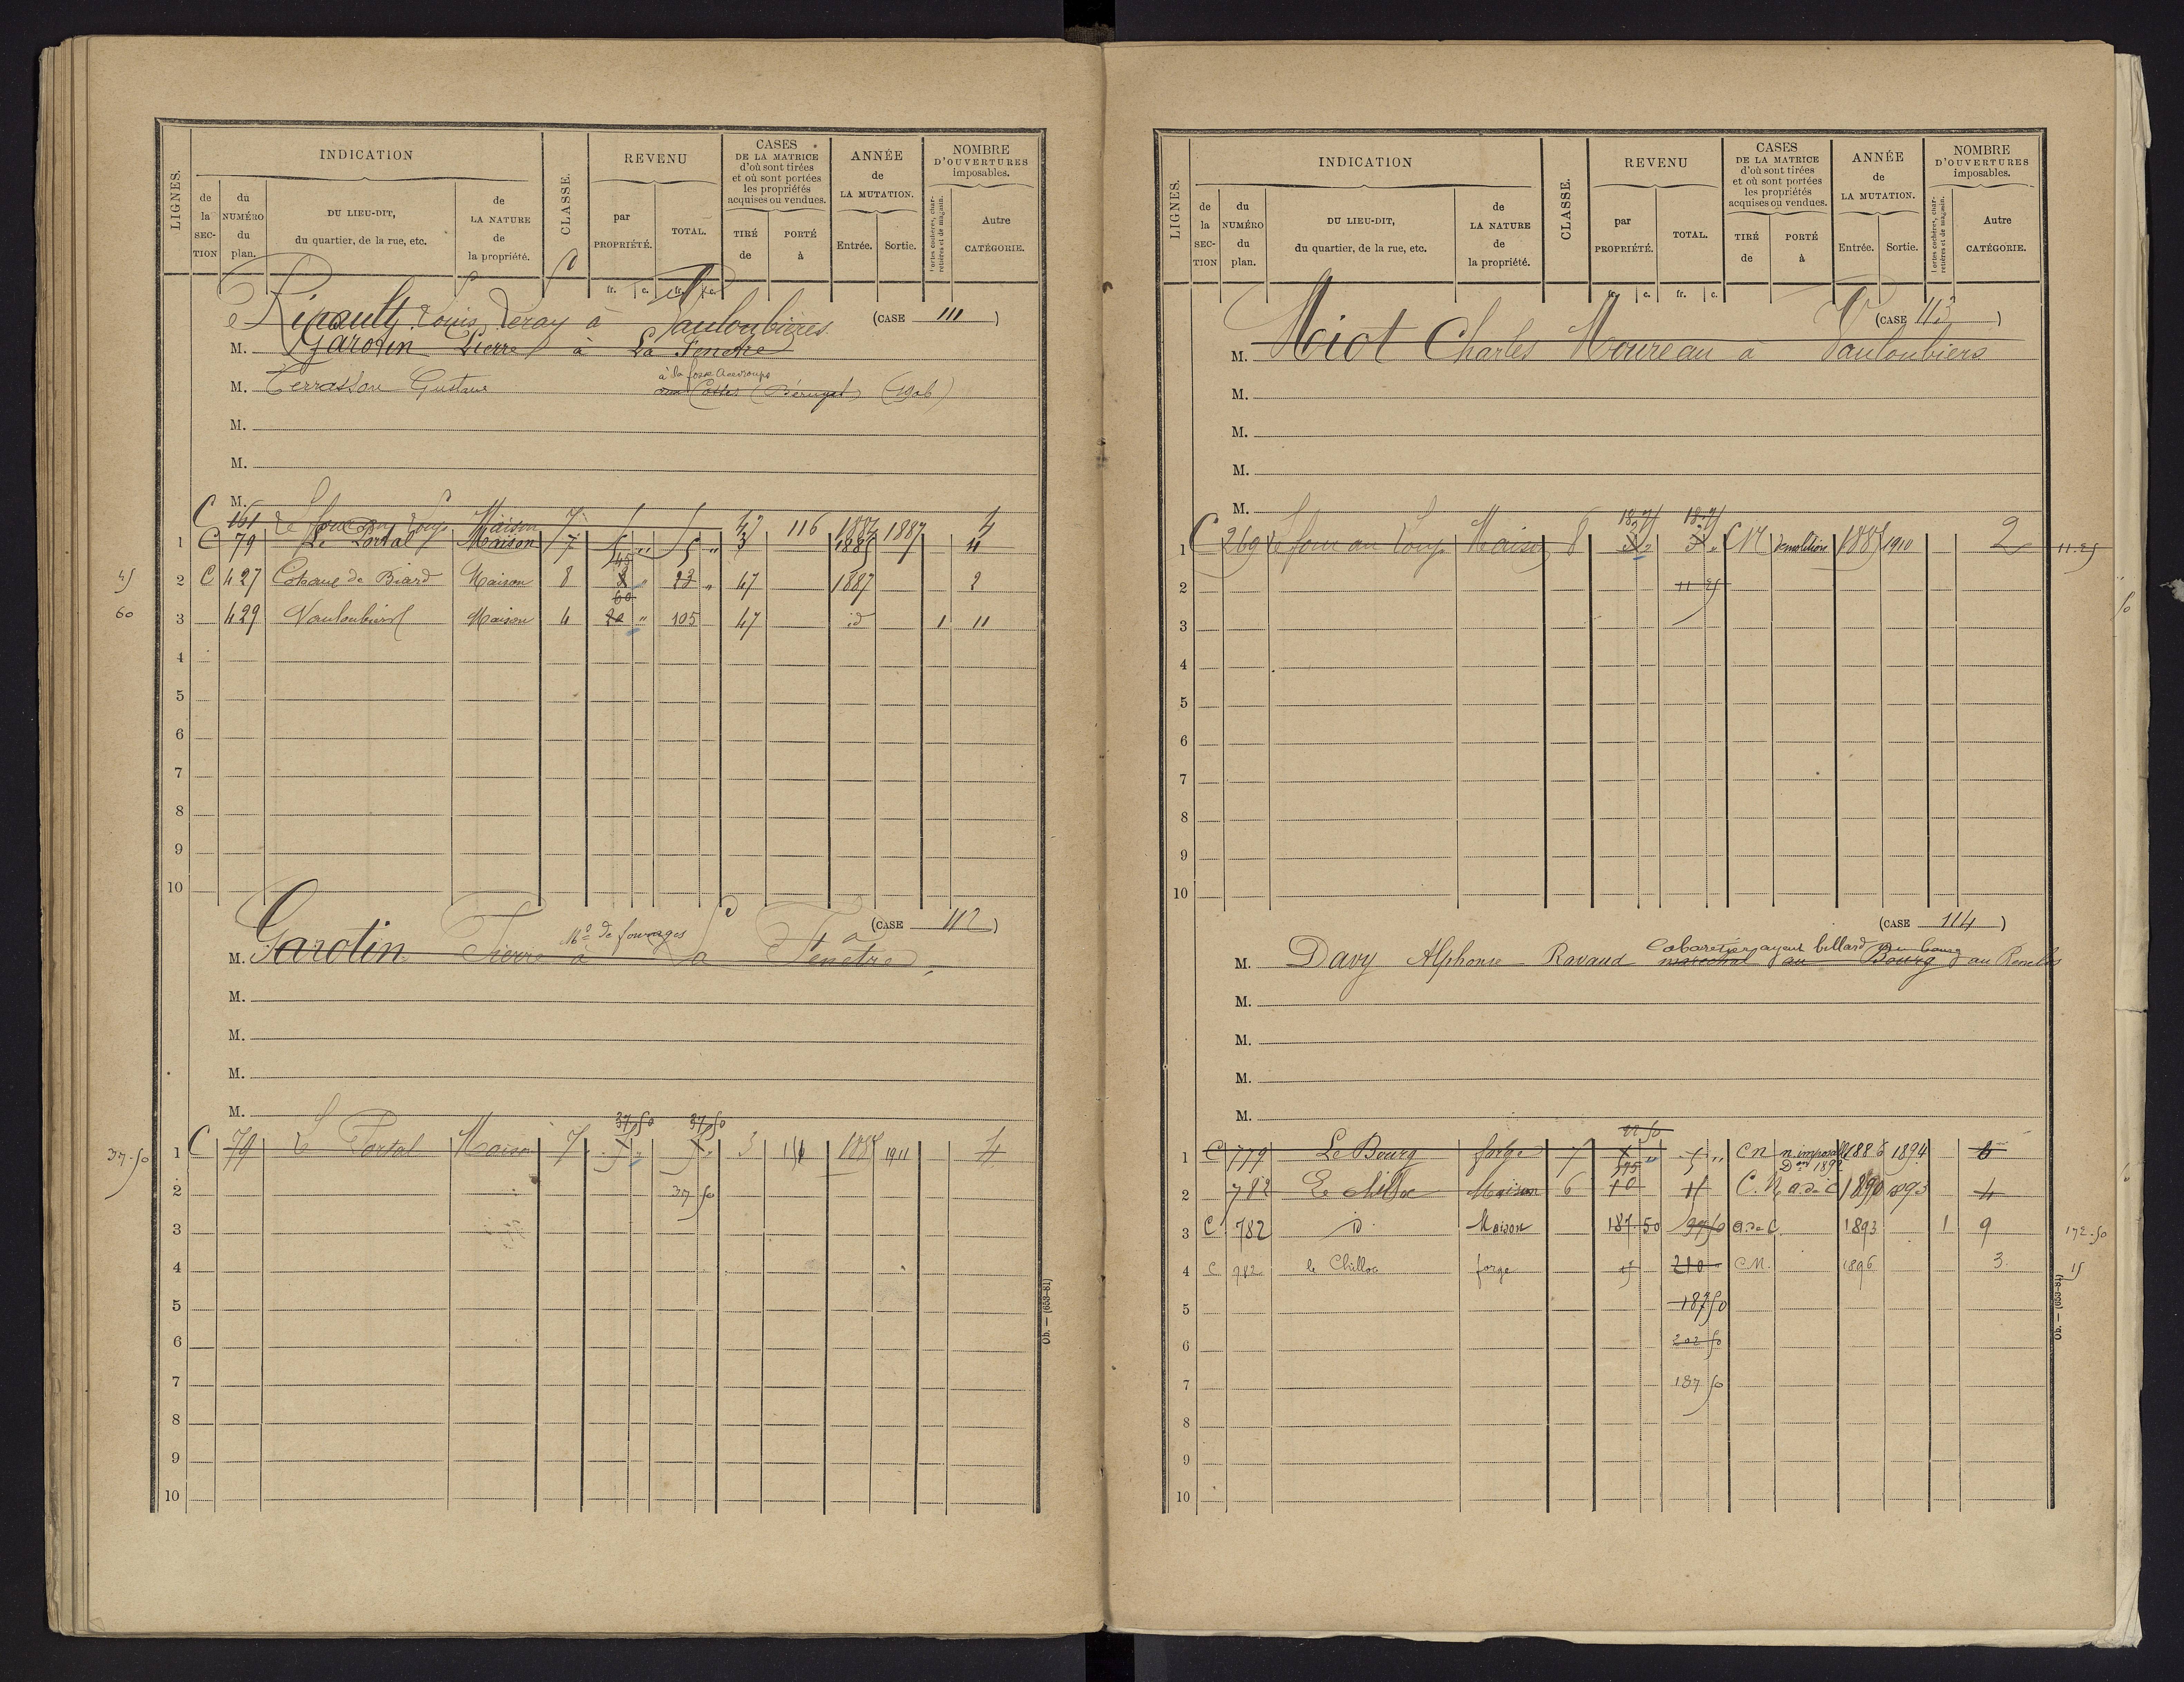 LIGNES.
INDICATION
de la SECTION
du NUMÉRO du plan.
DU LIEU-DIT, du quartier, de la rue, etc.
de LA NATURE de la propriété.
CLASSE.
REVENU
par PROPRIÉTÉ.
TOTAL.
CASES DE LA MATRICE d'où sont tirées et où sont portées les propriétés acquises ou vendues.
TIRÉ de
PORTÉ à
ANNÉE de LA MUTATION.
Entrée.
Sortie.
NOMBRE D'OUVERTURES imposables.
Portes cochères, charretières et de magasin.
Autre CATÉGORIE.
fr. c. fr. c.
Louis à Vauloubières (CASE 111)
M. Garotin Pierre à La Fenetre
à la fosse
M. Terrasson Gustave (1906)
M.
M.
M.
C 161 Le four au Loup Maison 7 5 5 47 116 1882 1887 4
1 C 79 Le Portal Maison 7 5 " 5 " 3 1885 4
45
45 2 C 427 Maison 8 8 " 23 " 47 1887 2
60
60 3 429 Vauloubiers Maison 4 20 " 105 47 id 1 11
4
5
6
7
8
9
10
(CASE 112)
Md de fourrages
M. Garotin Pierre à La Fenetre
M.
M.
M.
M.
37 50 37 50
37-50 1 C 79 Le Portal Maison 7 5 " 5 " 3 1887 1911 4
2 37 50
3
4
5
6
7
8
9
10
Ob. — (653-81)
LIGNES.
INDICATION
de la SECTION
du NUMÉRO du plan.
DU LIEU-DIT, du quartier, de la rue, etc.
de LA NATURE de la propriété.
CLASSE.
REVENU
par PROPRIÉTÉ.
TOTAL.
CASES DE LA MATRICE d'où sont tirées et où sont portées les propriétés acquises ou vendues.
TIRÉ de
PORTÉ à
ANNÉE de LA MUTATION.
Entrée.
Sortie.
NOMBRE D'OUVERTURES imposables.
Portes cochères, charretières et de magasin.
Autre CATÉGORIE.
fr. c. fr. c.
(CASE 113)
M. Miot Charles Moureau à Vauloubiers
M.
M.
M.
M.
1 C 269 Le four au Loup Maison 8 3 " 3 " CN démolition 1887 1910 2 11-25
2 11 25
3
4
5
6
7
8
9
10
(CASE 114)
Cabaretier ayant billard au bourg
M. Davy Alphonse Ravaud marechal au Bourg
M.
M.
M.
M.
22 50
1 C 779 Le Bourg forge 7 5 " 5 " CN n. imposable 1888 1894 6
Don 1892
2 782 Le Chilloc Maison 6 10 15 C.N a. de C 1890 1893 4
3 C 782 id. Maison 187 50 a. de C 1893 1 9 172-50
4 C 782 le Chilloc forge 15 210 CN. 1896 3. 15
5 187 50
6 202 50
7 187 50
8
9
10
Ob. — (653-81)